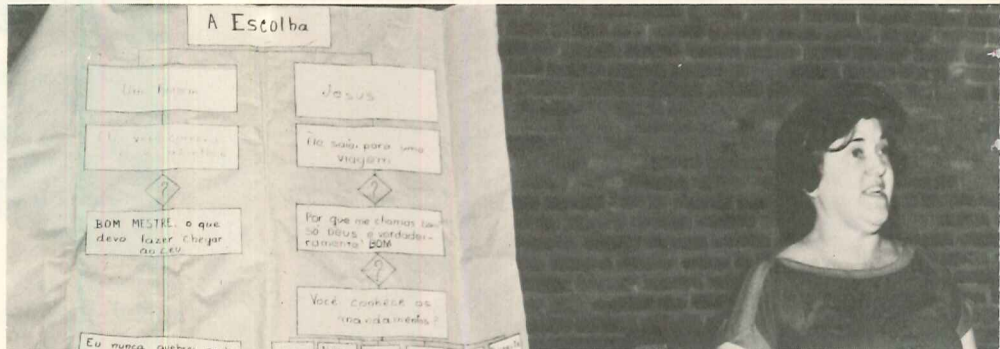 A Escolha
Um
Jesus
Ele saía, para uma
viagem
?
?
BOM MESTRE, o que
devo fazer chegar
ao ceu
Por que me chamas
só Deus e verdadei-
ramente BOM
?
Você conhece os
mandamentos?
Eu nunca